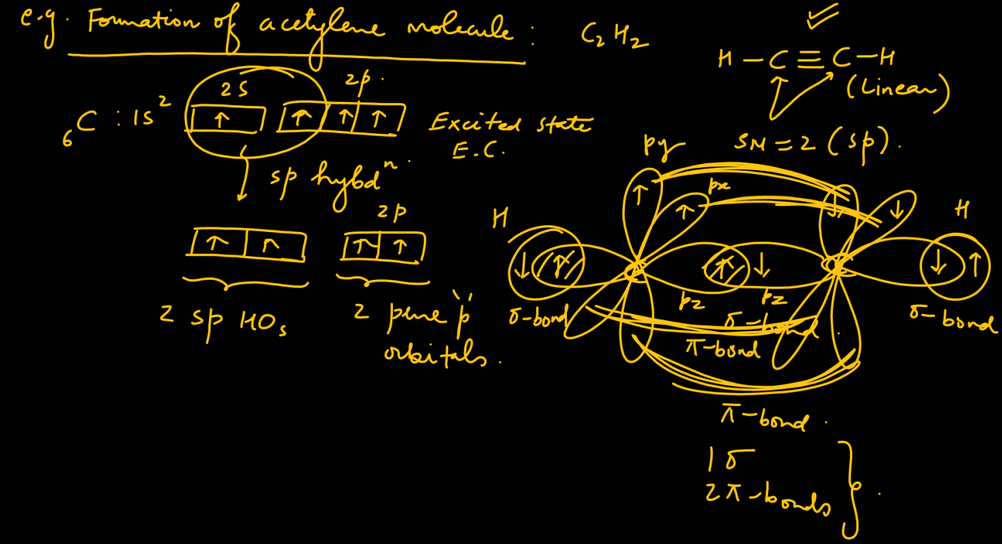 e.g Formation of acetylene molecule : C₂H₂
H – C ≡ C – H
(Linear)
SN = 2 (sp).
2s 2p.
₆C : 1s² ↑ ↑ ↑ ↑ Excited state
E.C.
sp hybdⁿ.
2p
↑ ↑ ↑ ↑
2 sp HOs
2 pure 'p'
orbitals.
py px
↑ ↑ ↓
H H
↓ ↑ ↑ ↓ ↓ ↑
pz pz
σ-bond σ-bond σ-bond
π-bond
π-bond.
1σ
2π-bonds